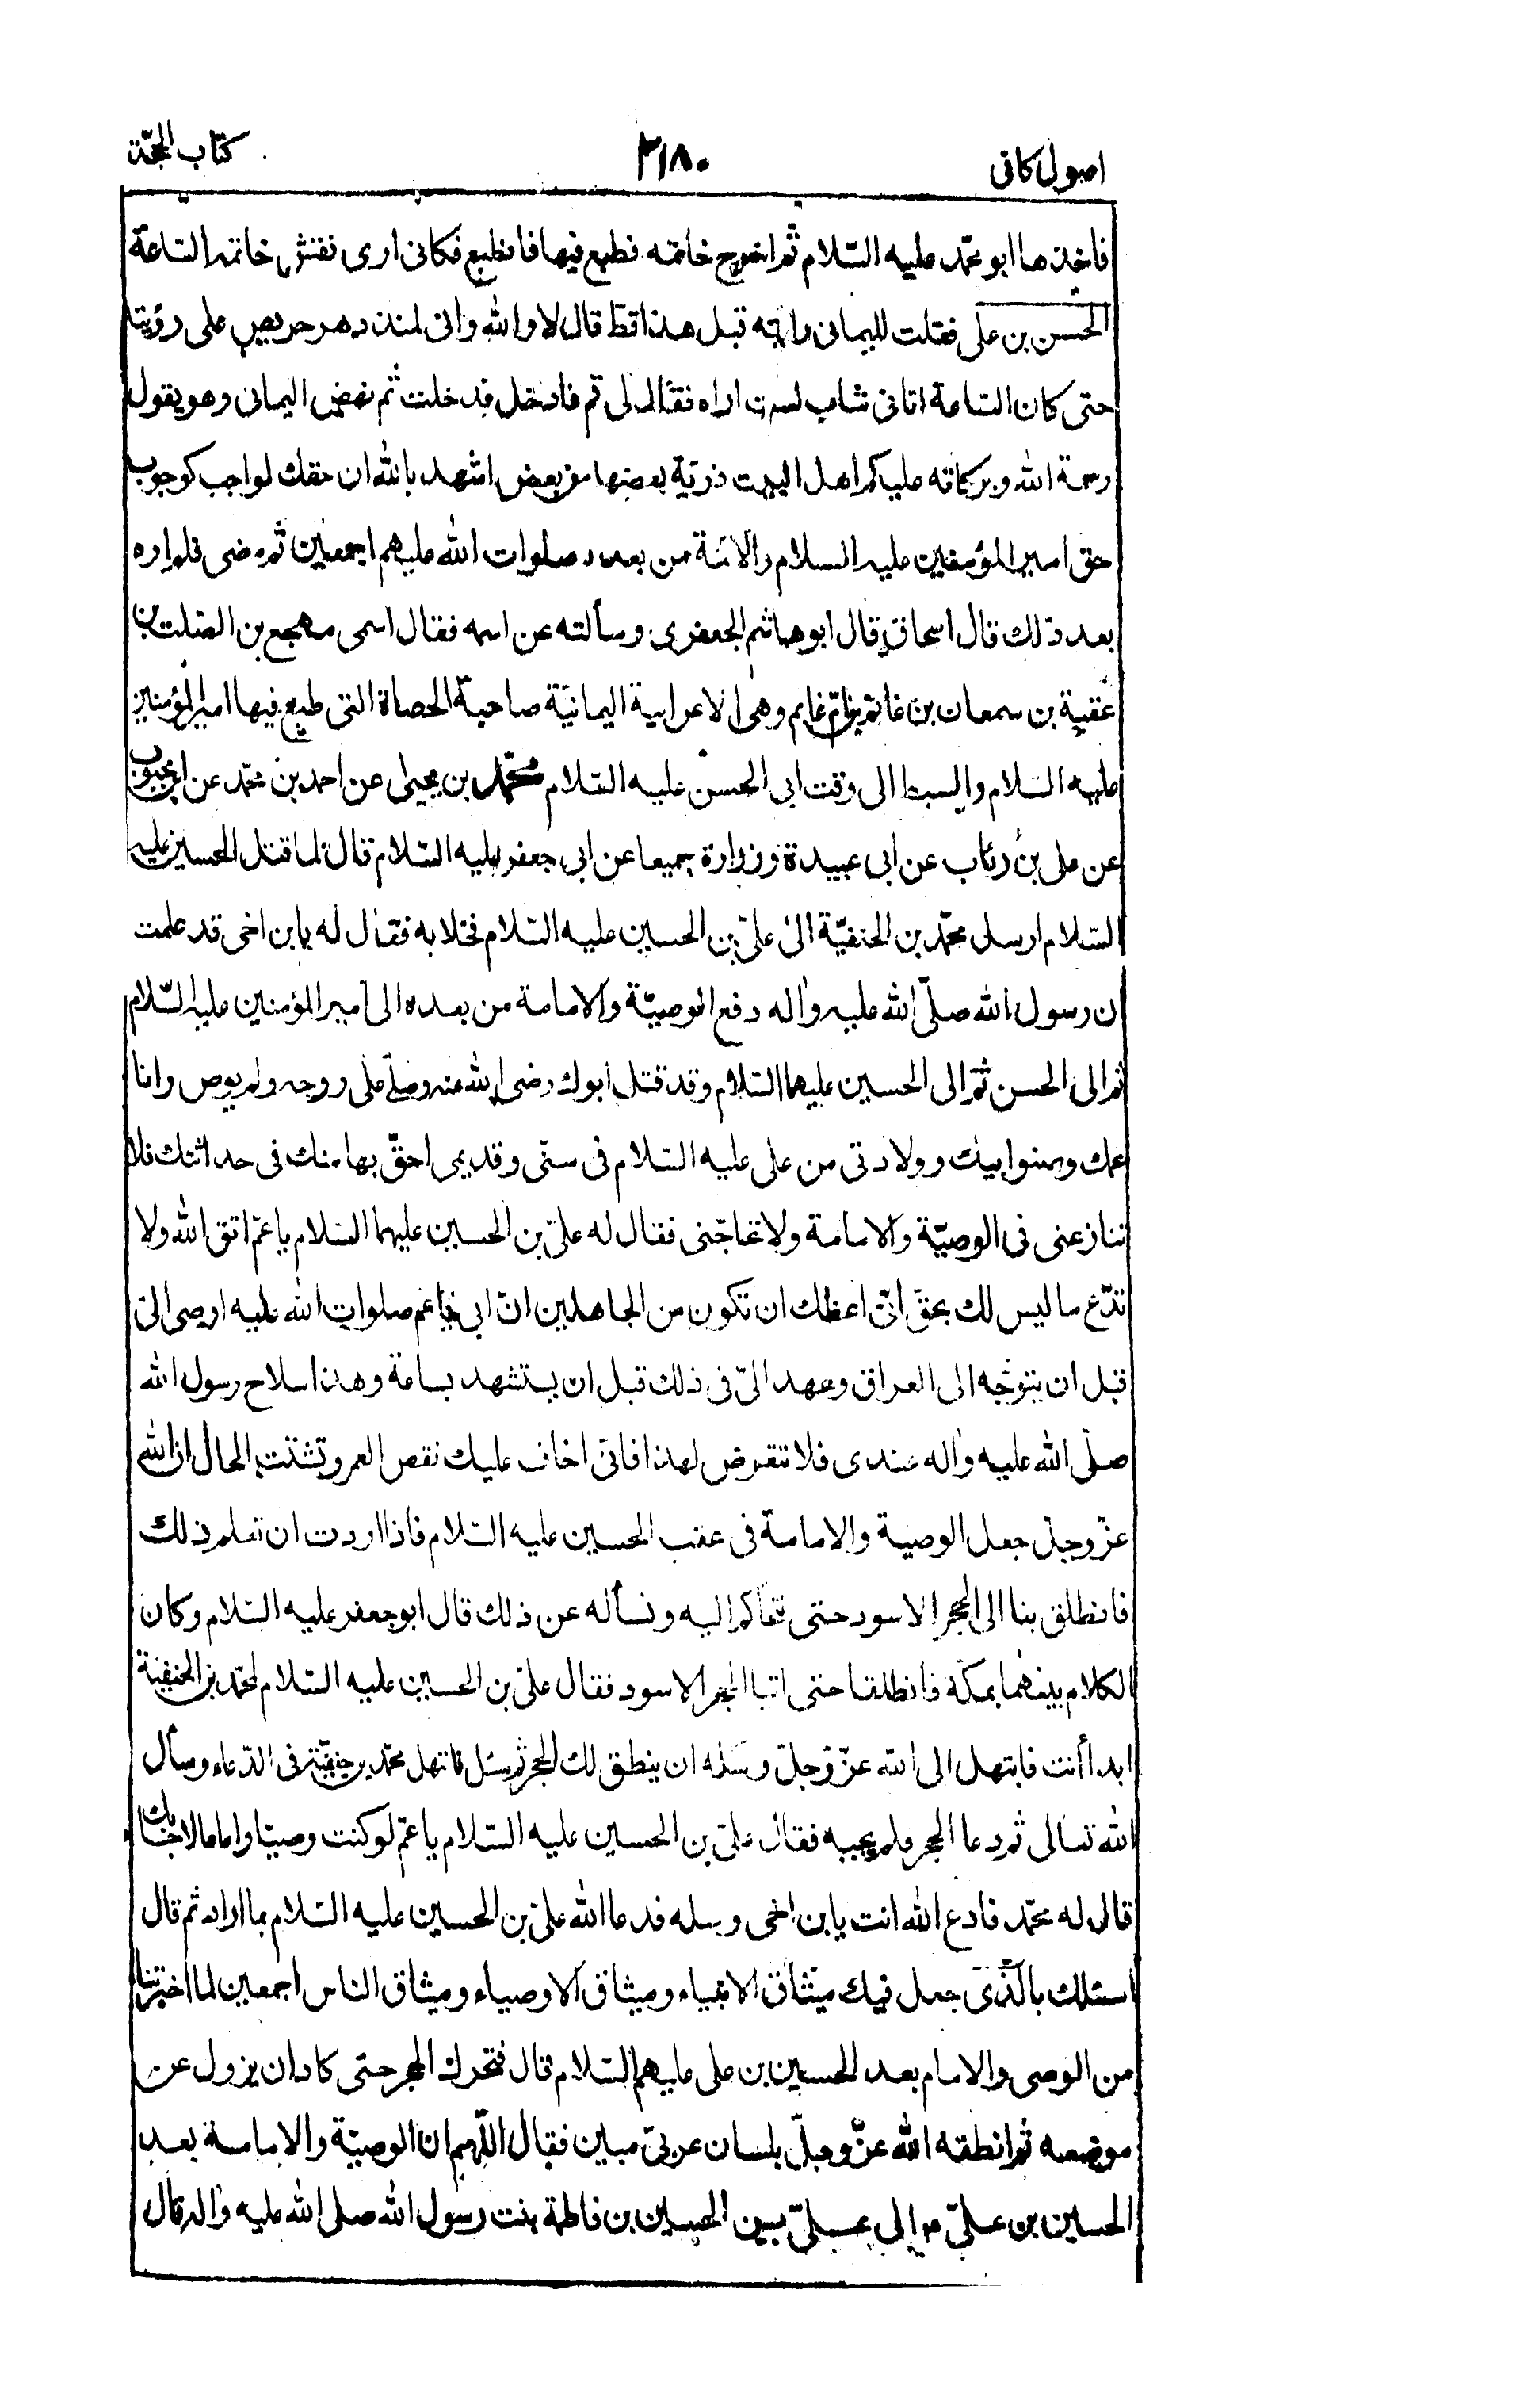 اصول كافى ٢١٨٠ كتاب الحجّة
فاخذها ابو محمّد عليه السّلام ثم اخرج خاتمه فطبع فيها فانطبع فكانى ارى نقش خاتمه السّاعة
الحسن بن على فقلت لليمانى رايته قبل هذا قطّ قال لا والله وانى لمنذ دهر حريص على رؤيته
حتى كان السّاعة اتانى شاب لست اراه فقال لى قم فادخل فدخلت ثم نهض اليمانى وهو يقول
رحمة الله وبركاته عليكم اهل البيت ذريّة بعضها من بعض اشهد بالله ان حقك لواجب كوجوب
حق امير المؤمنين عليه السلام والائمّة من بعده صلوات الله عليهم اجمعين ثم مضى فلم اره
بعد ذلك قال اسحاق قال ابو هاشم الجعفرى وسألته عن اسمه فقال اسمى مهجع بن الصّلت بن
عقبة بن سمعان بن غانم بن ام غانم وهى الاعرابية اليمانيّة صاحبة الحصاة التى طبع فيها امير المؤمنين
عليه السّلام والسبط الى وقت ابى الحسن عليه السّلام محمّد بن يحيى عن احمد بن محمّد عن ابن محبوب
عن على بن رئاب عن ابى عبيدة وزرارة جميعا عن ابى جعفر عليه السّلام قال لما قتل الحسين عليه
السّلام ارسل محمّد بن الحنفيّة الى علىّ بن الحسين عليه السّلام فخلا به فقال له يا بن اخى قد علمت
ان رسول الله صلّى الله عليه واله دفع الوصيّة والامامة من بعده الى امير المؤمنين عليه السّلام
ثم الى الحسن ثمّ الى الحسين عليهما السّلام وقد قتل ابوك رضى الله عنه وصلّى على روحه ولم يوص وانا
عمك وصنو ابيك وولادتى من على عليه السّلام فى سنّى وقديمى احقّ بها منك فى حداثتك فلا
تنازعنى فى الوصيّة والامامة ولا تحاجّنى فقال له علىّ بن الحسين عليهما السّلام يا عمّ اتق الله ولا
تدّع ما ليس لك بحقّ انّى اعظك ان تكون من الجاهلين انّ ابى يا عم صلوات الله عليه اوصى الىّ
قبل ان يتوجّه الى العراق وعهد الىّ فى ذلك قبل ان يستشهد بساعة وهذا سلاح رسول الله
صلّى الله عليه واله عندى فلا تتعرض لهذا فانّى اخاف عليك نقص العمر وتشتّت الحال ان الله
عزّ وجلّ جعل الوصية والامامة فى عقب الحسين عليه السّلام فاذا اردت ان تعلم ذلك
فانطلق بنا الى الحجر الاسود حتى نتحاكم اليه ونسأله عن ذلك قال ابو جعفر عليه السّلام وكان
الكلام بينهما بمكّة فانطلقا حتى اتيا الحجر الاسود فقال علىّ بن الحسين عليه السّلام لمحمّد بن الحنفية
ابدأ أنت فابتهل الى الله عزّ وجلّ وسله ان ينطق لك الحجر ثم سئل فابتهل محمّد بن حنفيّة فى الدّعاء وسأل
الله تعالى ثم دعا الحجر فلم يجبه فقال علىّ بن الحسين عليه السّلام يا عمّ لو كنت وصيّا واماما لاجابك
قال له محمّد فادع الله انت يا بن اخى وسله فدعا الله علىّ بن الحسين عليه السّلام بما اراد ثم قال
اسئلك بالّذى جعل فيك ميثاق الانبياء وميثاق الاوصياء وميثاق الناس اجمعين لما اخبرتنا
من الوصى والامام بعد الحسين بن على عليهم السّلام قال فتحرك الحجر حتى كاد ان يزول عن
موضعه ثم انطقه الله عزّ وجلّ بلسان عربىّ مبين فقال اللّهم ان الوصيّة والامامة بعد
الحسين بن علىّ الى علىّ بن الحسين بن فاطمة بنت رسول الله صلى الله عليه واله قال